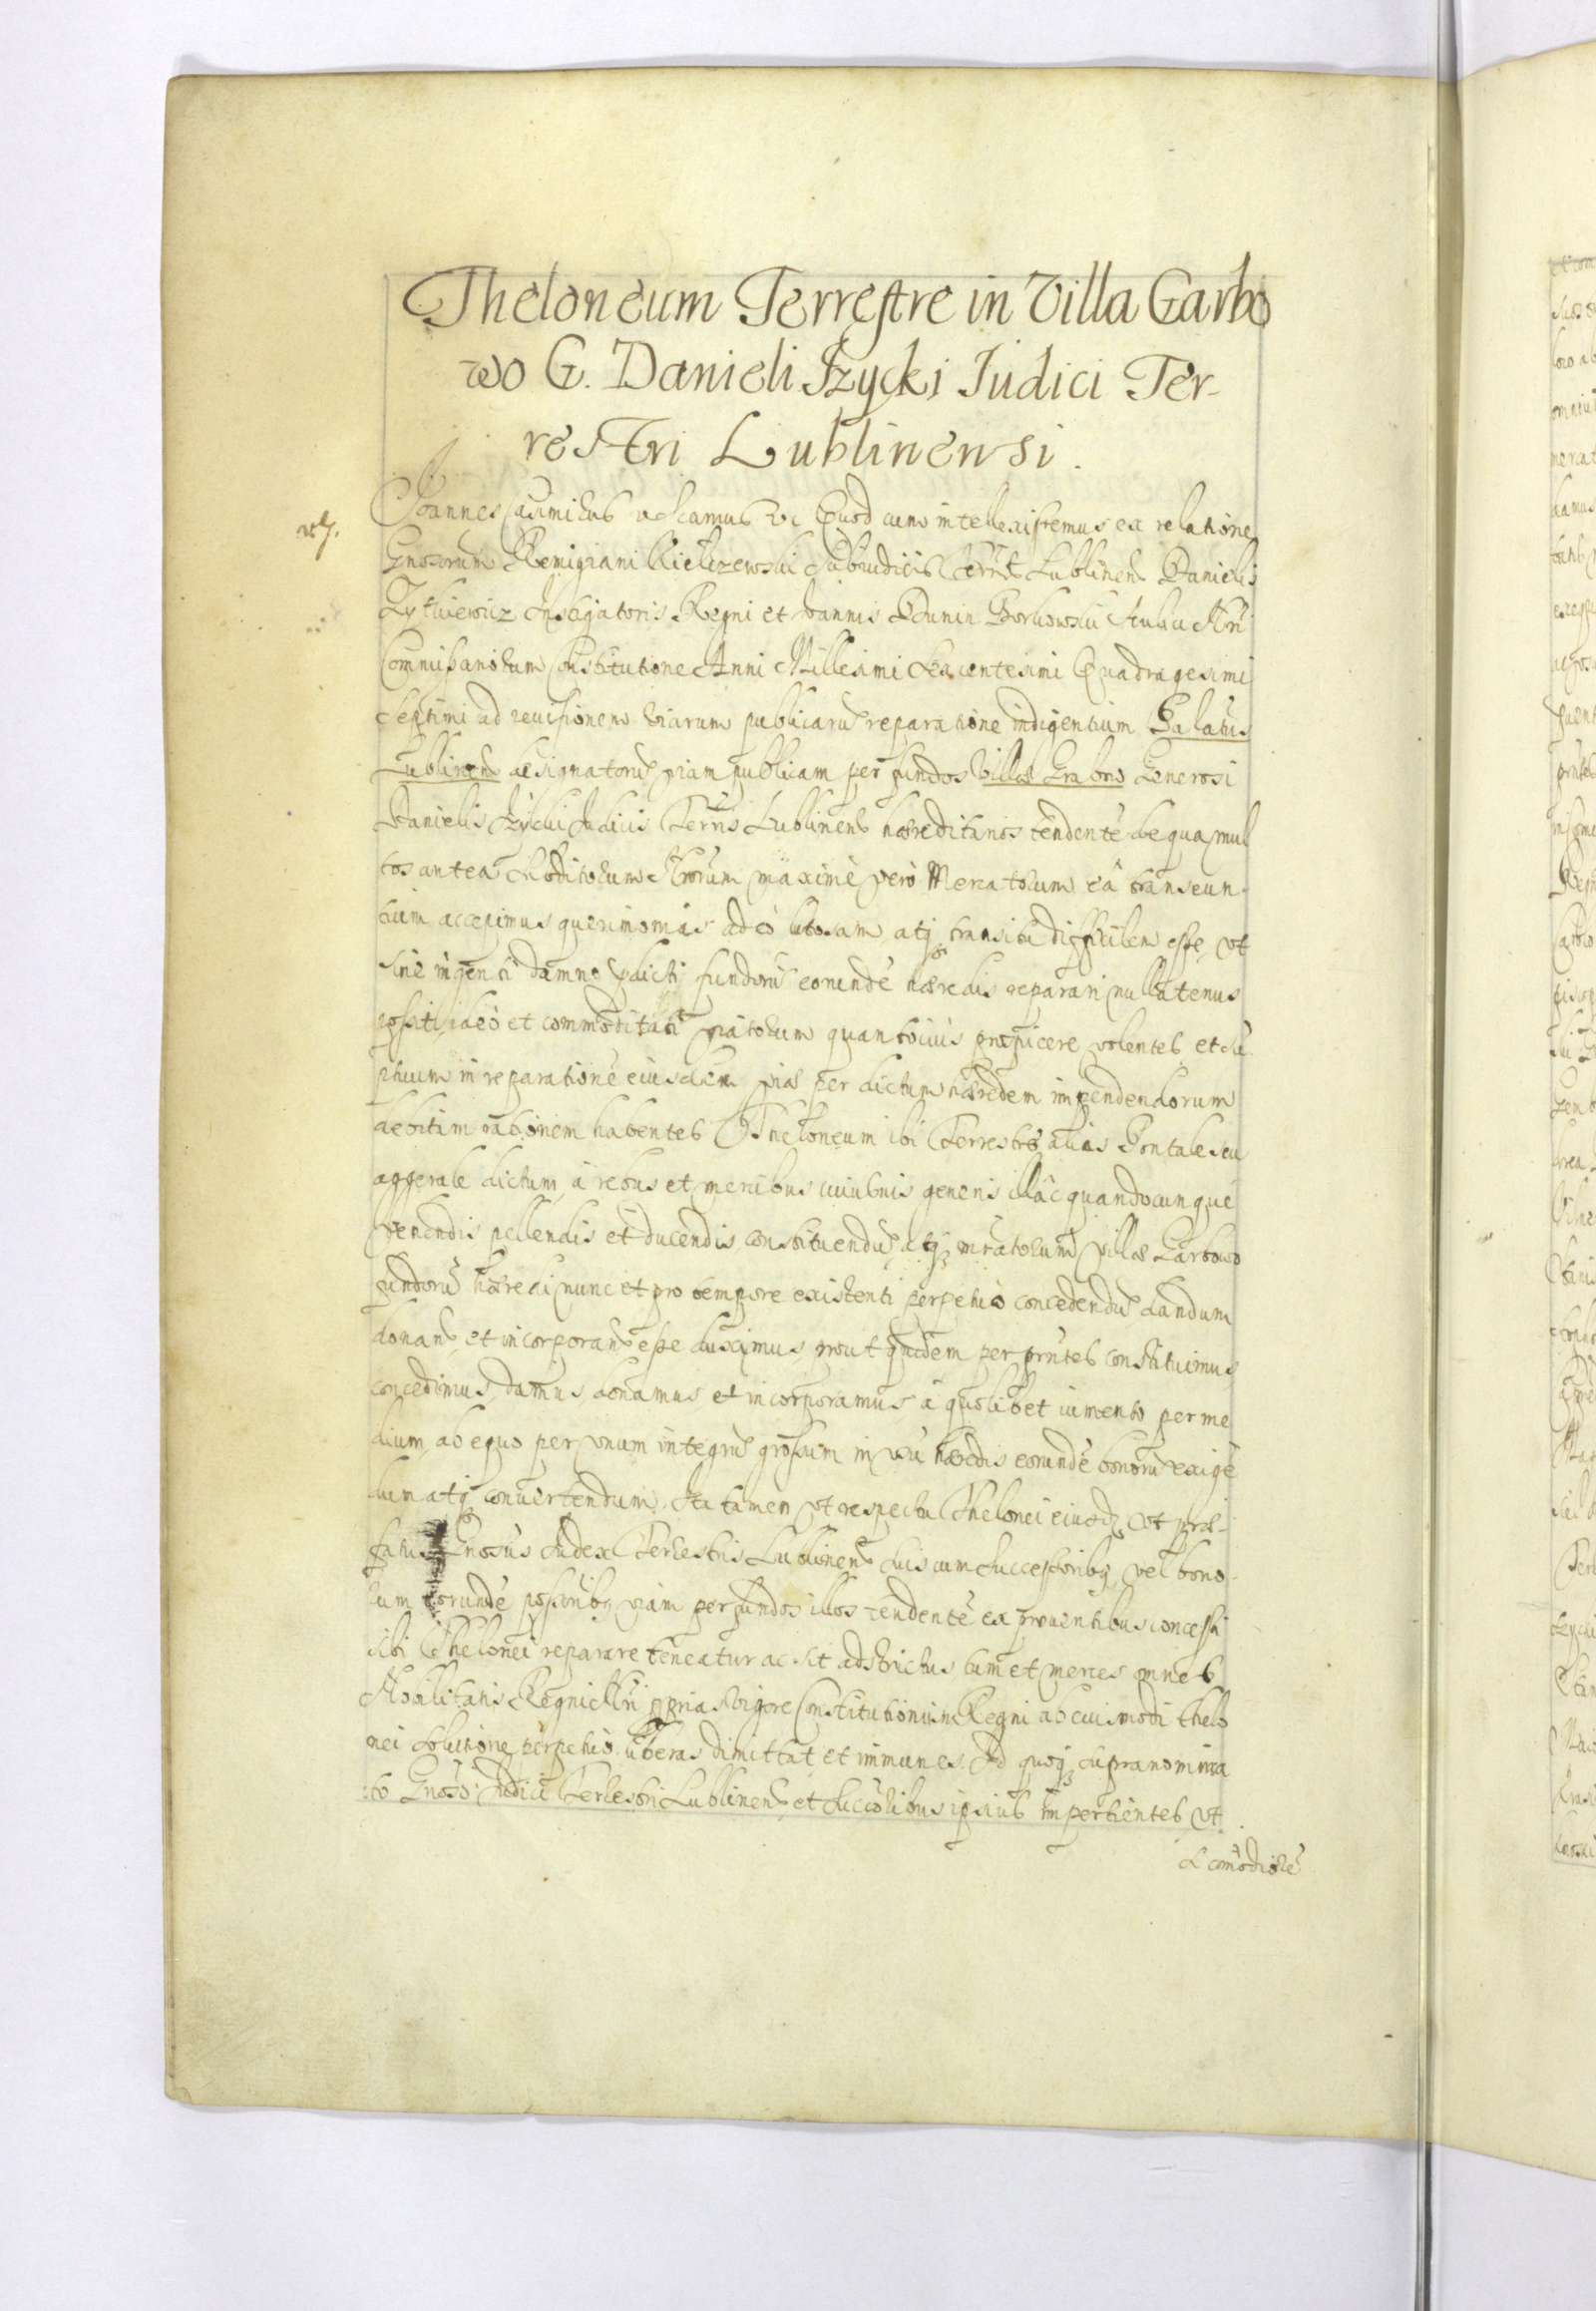 Theloneum Terrestre in Villa Garbo
wo G. Danieli Iżycki Iudici Ter-
restri Lublinensi.
Joannes Casimirus Quod cum intellexissemus ex relatione
Gnosorum Remigiani Kielczewski Subiudicis Terrs Lublinens Danielis
Zytkiewicz Instigatoris Regni et Joannis Dunin Borkowski Aulici Nri
Commissariorum Constitutione Anni Millesimi Sexcentesimi Quadragesimi
Septimi ad reuisionem viarum publicarũ reparatione indigentium Palatus
Lublinens designatorũ viam publicam per fundos Villæ Grabow Generosi
Danielis Iżycki Judicis Terris Lublinens hæreditarios tendentẽ de qua mul
tos antea Subditorum Nrorum maximè verò Mercatorum eâ transeun
tium accepimus querimonias adeò lutosam atq transitu difficilem esse, vt
sine ingenti damno pdicti fundorũ eorundẽ hæredis reparari nullatenus
possit, ideò et commoditati viatorum quantocius prospicere volentes et su
ptuum in reparationẽ eiusdem viæ per dictum hæredem impendendorum
debitam rationem habentes Theloneum ibi Terrestre aliàs Pontale seu
aggerale dictum, à rebus et mercibus cuiusuis generis illâc quandocunque
vehendis pellendis et ducendis constituendũ atq villæ Garbowo
fundorũ hæredi nunc et pro tempore existenti perpetuò concedendũ dandum
donand et incorporand esse duximus prout quidem per prntes constituimus
concedimus, damus, donamus et incorporamus à quolibet iumento per me
dium, ab equo per vnum integrũ grossum in vsũ hæredis eorundẽ bonorũ exigẽ
dum atq conuertendum. Ita tamen vt respectu Thelonei eiusdẽ vt præ-
fatus Gnosus Iudex Terrestris Lublinens suis cum Successoribq vel bono-
rum eorundẽ possoribq viam per fundos illos tendentẽ ex prouentibus concessi
sibi Thelonei reparare teneatur ac sit adstrictus tum et merces omnes
Nobilitatis Regni Nri pprias vigore Constitutionum Regni ab eiusmodi thelo
nei solutione perpetuò liberas dimittat et immunes. Id quoq supranomina
to Gnoso Iudici Terrestri Lublinens et Succoribus ipsius impertientes vt
commodiorẽ